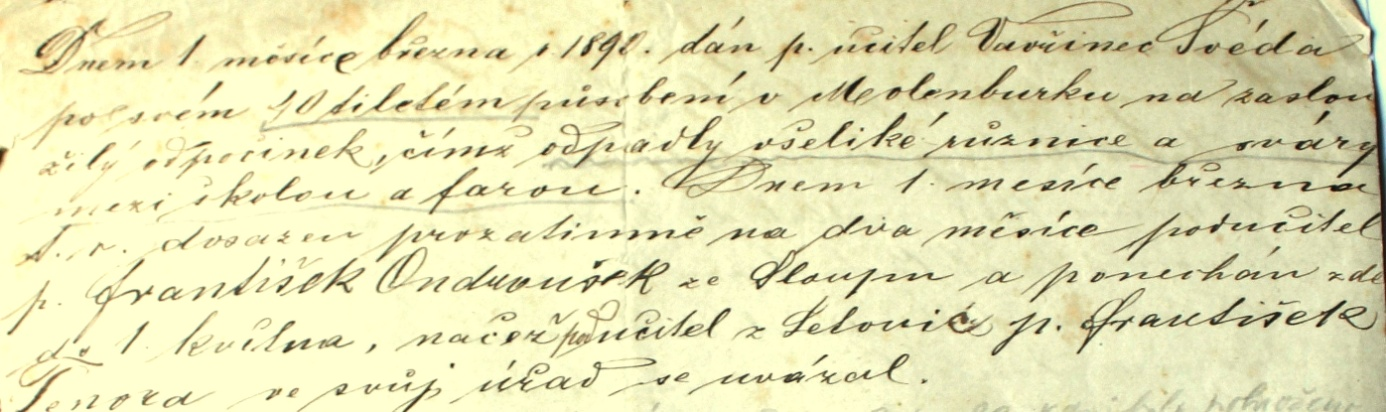 Dnem 1. měsíce března r. 1890. dán p. učitel Vavřinec Švéda
po svém 40 tiletém působení v Molenburku na zaslou
žilý odpočinek, čímž odpadly všeliké různice a sváry
mezi školou a farou. Dnem 1. mesíce března
t. r. dosazen prozatimně na dva měsíce podučitel
p. František Ondroušek ze Sloupu a ponechán zde
do 1. května, načež podučitel z Letovic p. František
Tenora ve svůj úřad se uvázal.